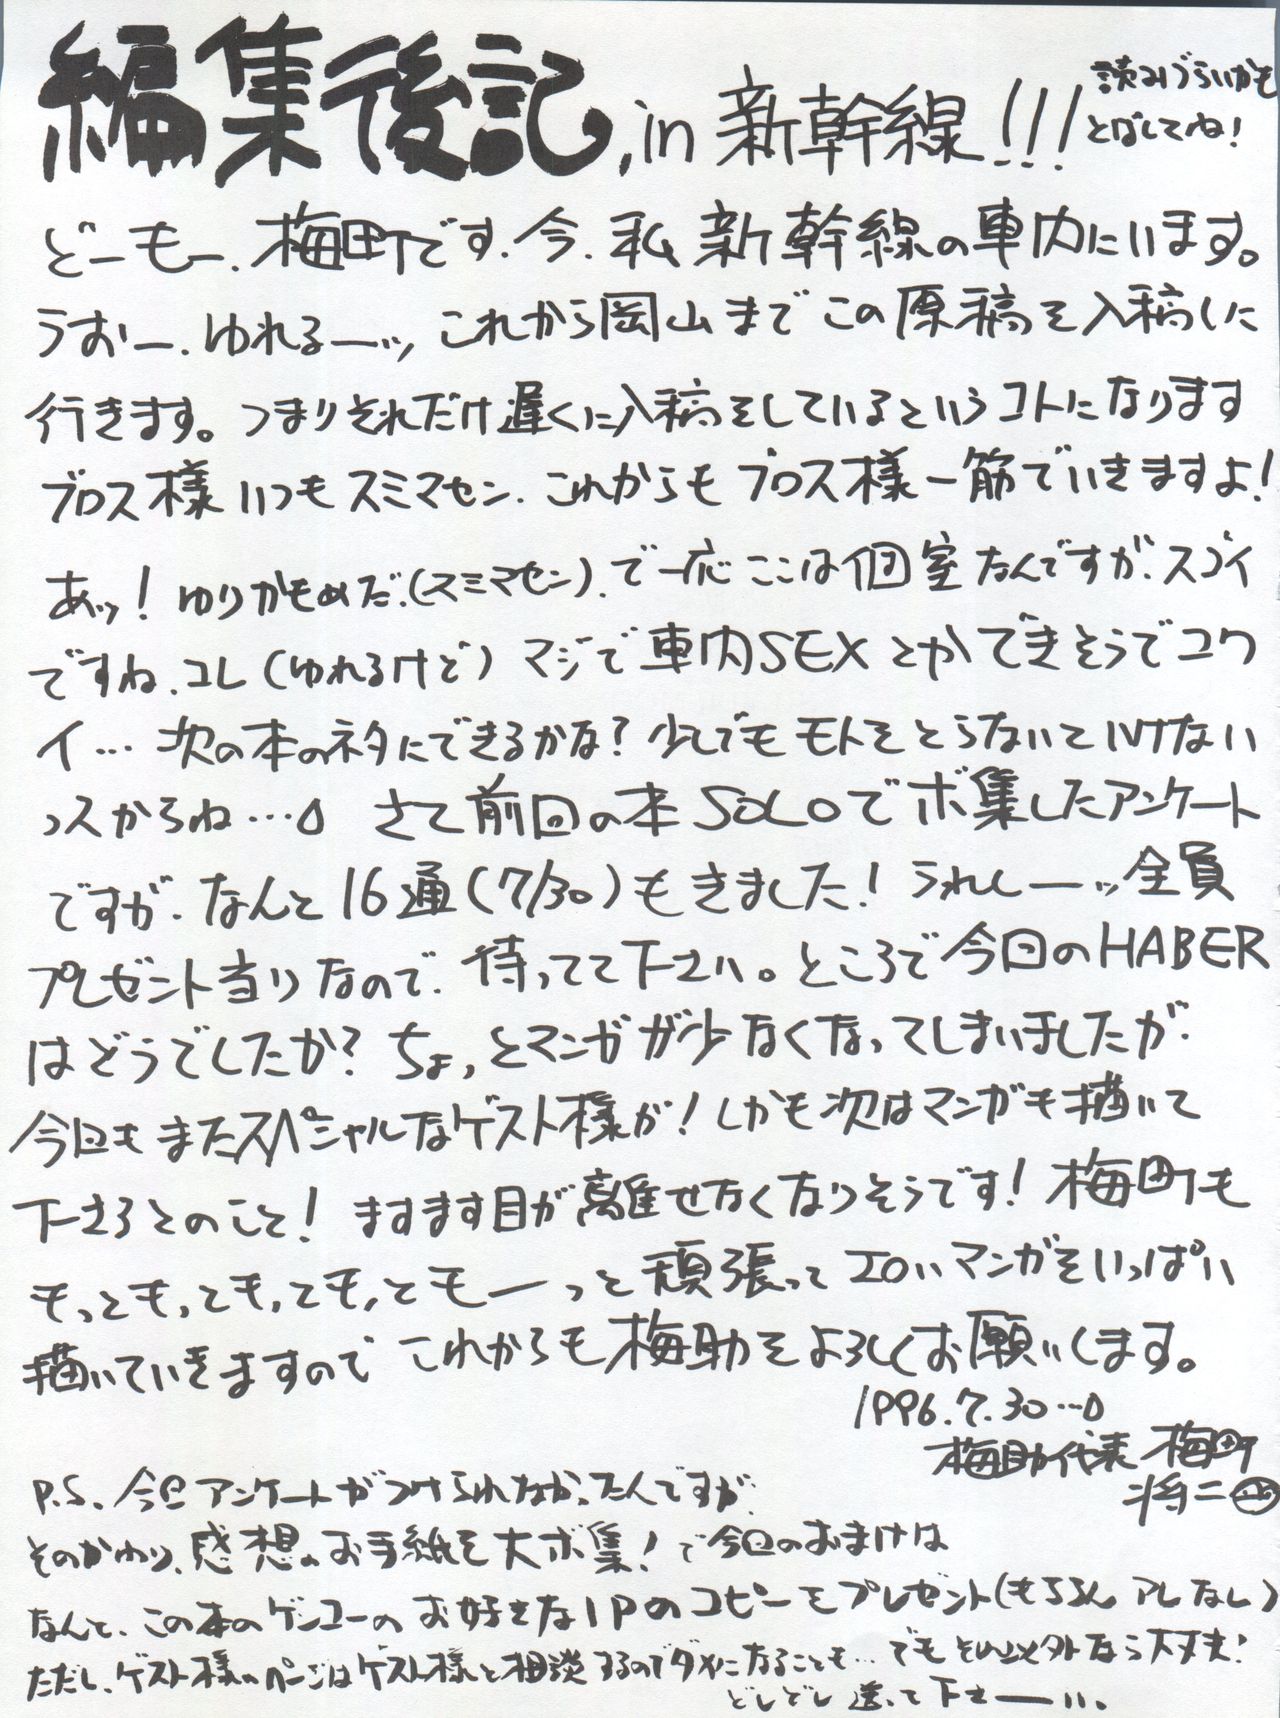 編集後記, in 新幹線!!!
読みづらいかも
とばしてね!
どーもー、梅町です。今、私新幹線の車内にいます。
うおー、ゆれるーッ これから岡山までこの原稿を入稿しに
行きます。つまりそれだけ遅くに入稿をしているというコトになります
ブロス様いつもスミマセン、これからもブロス様一筋でいきますよ!
あッ! ゆりかもめだ、(スミマセン)、で一応ここは個室なんですが、スゴイ
ですね、コレ(ゆれるけど) マジで車内SEXとかできそうでコワ
イ… 次の本のネタにできるかな? 少しでもモトをとらないといけない
っスからね… さて前回の本SOLOでボ集したアンケート
ですが、なんと16通(7/30)もきました! うれしーッ全員
プレゼント当りなので、待ってて下さい。ところで今回のHABER
はどうでしたか? ちょっとマンガが少なくなってしまいましたが、
今回もまたスペシャルなゲスト様が! しかも次はマンガも描いて
下さるとのこと! ますます目が離せなくなりそうです! 梅町も
もっともっともっともっともーっと頑張ってエロいマンガをいっぱい
描いていきますので これからも梅助をよろしくお願いします。
1996.7.30…
梅助代表 梅町
将二
P.S. 今回アンケートがつけられなかったんですが、
そのかわり、感想のお手紙を大ボ集! で今回のおまけは
なんと、この本のゲンコーのお好きな1Pのコピーをプレゼント(もちろんアレなし)
ただし、ゲスト様のページはゲスト様と相談するのでダメになることも… でもそれ以外なら大丈夫!
どしどし送って下さーーい。